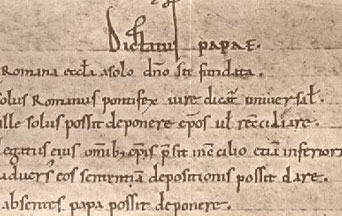 Dictatus papae.
Romana eccła a solo dño sit fundata.
solus Romanus pontifex iure dicat̃ universał.
ille solus possit deponere ep̃os uł recc̃iliare.
legatus eius om̃ib; ep̃is p̃sit in c̃cilio etiã inferior
advers̃ eos sententiam depositionis possit dare.
absentes papa possit deponere.